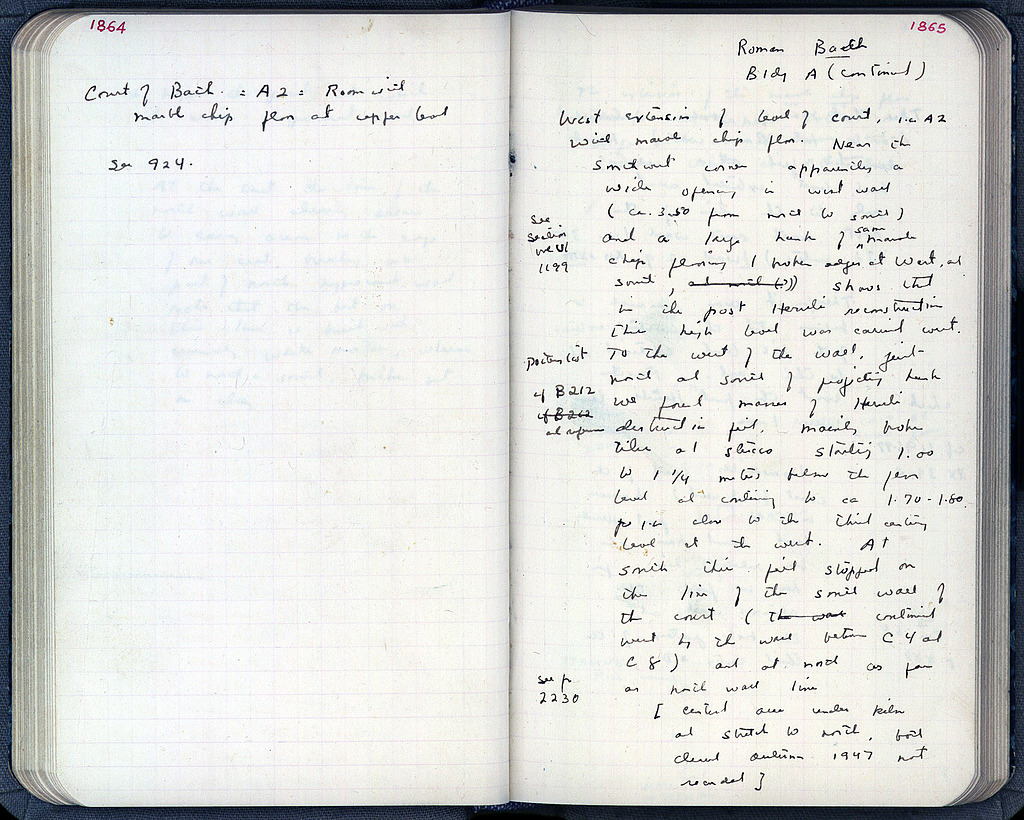 1864
Court of Bath. = A2 = Room with
marble chip floor at upper level
See 924.
1865
Roman Bath
Bldg A (continued)
West extension of level of court, i.e. A2
with marble chip floor. Near the
southwest corner apparently a
wide opening in west wall
(ca. 3.50 from north to south)
See
Section
1199
and a large hunk of same marble
chip flooring (broken edges at west, at
south, and north (?)) shows that
in the post Herulian reconstruction
this high level was carried west.
To the west of the wall, just
north and south of projecting hunk
we found masses of Herulian
destruction fill, mainly broken
tiles and stucco starting 1.00
to 1 1/4 metres below the floor
level and continuing to ca 1.70-1.80
i.e. close to the third
level at the west. At
south this fill stopped on
the line of the south wall of
the court (the wall continued
west by the wall between C4 and
C8) and at north as far
as north wall line
Pottery list
cf B212
cf B262
See p
2230
[central area under kiln
and stretch to north, both
cleared autumn 1947 not
recorded]